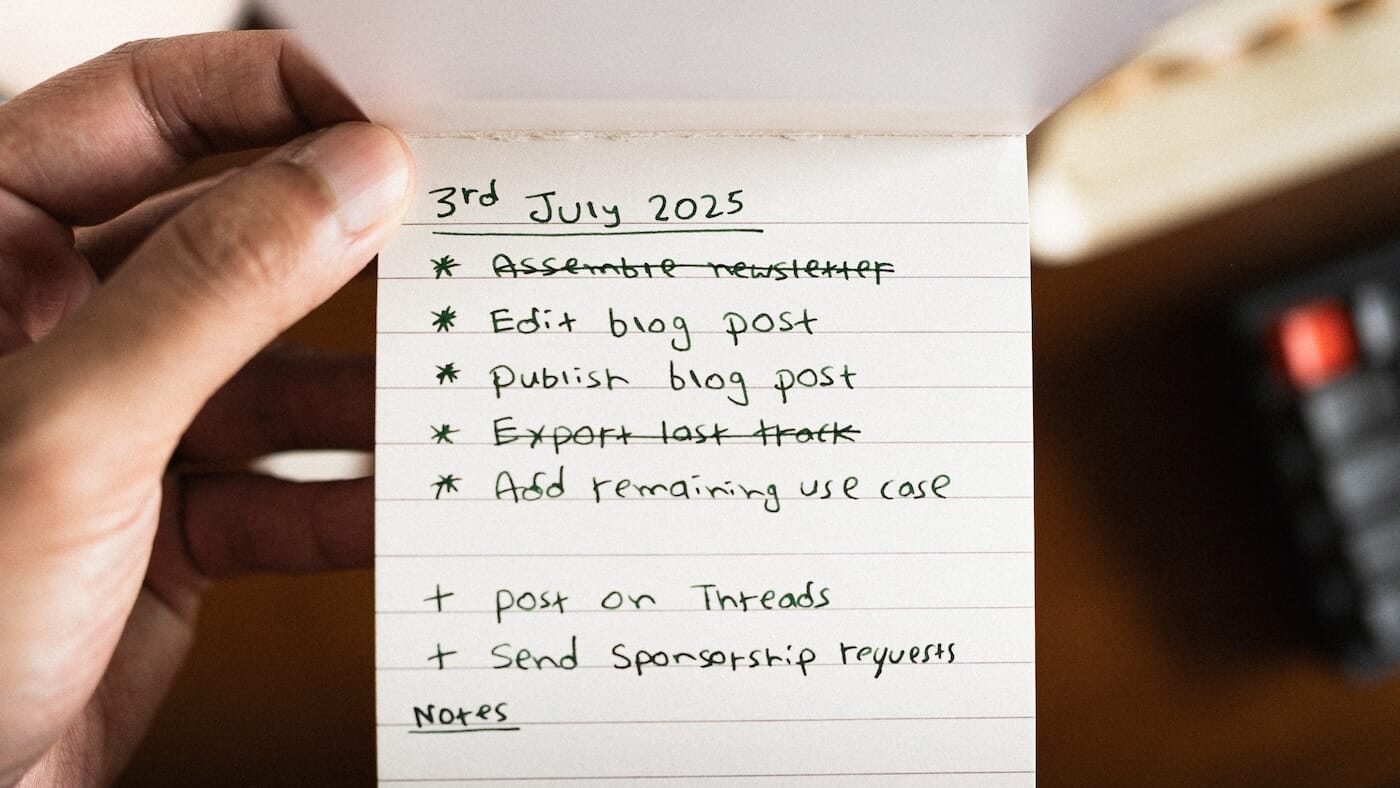 3rd July 2025
* Assemble newsletter
* Edit blog post
* publish blog post
* Export last track
* Add remaining use case
+ post on Threads
+ Send Sponsorship requests
Notes